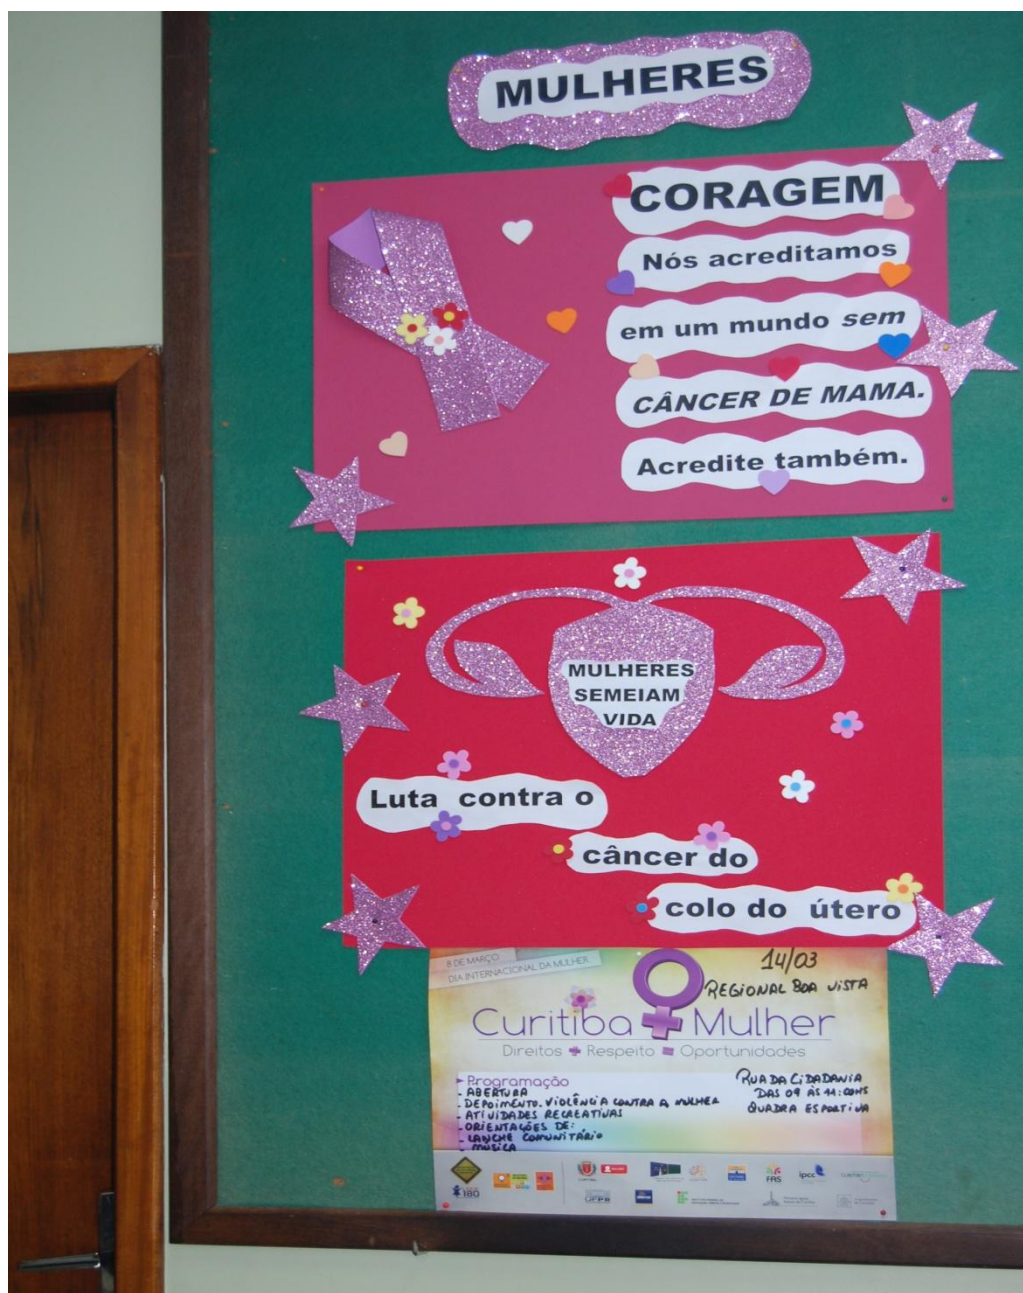 MULHERES
CORAGEM
Nós acreditamos
em um mundo sem
CÂNCER DE MAMA.
Acredite também.
MULHERES
SEMEIAM
VIDA
Luta contra o
câncer do
colo do útero
8 DE MARÇO
DIA INTERNACIONAL DA MULHER
14/03
REGIONAL BOA VISTA
Curitiba + Mulher
Direitos + Respeito = Oportunidades
Programação
- ABERTURA
- DEPOIMENTO. VIOLÊNCIA CONTRA A MULHER
- ATIVIDADES RECREATIVAS
- ORIENTAÇÕES DE:
- LANCHE COMUNITÁRIO
- MÚSICA
RUA DA CIDADANIA
DAS 09 ÀS 11:00HS
QUADRA ESPORTIVA
180
UFPR
FAS
ipcc